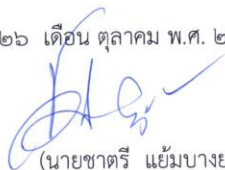 ๒๖ เดือน ตุลาคม พ.ศ. ๒
(นายชาตรี แย้มบางย